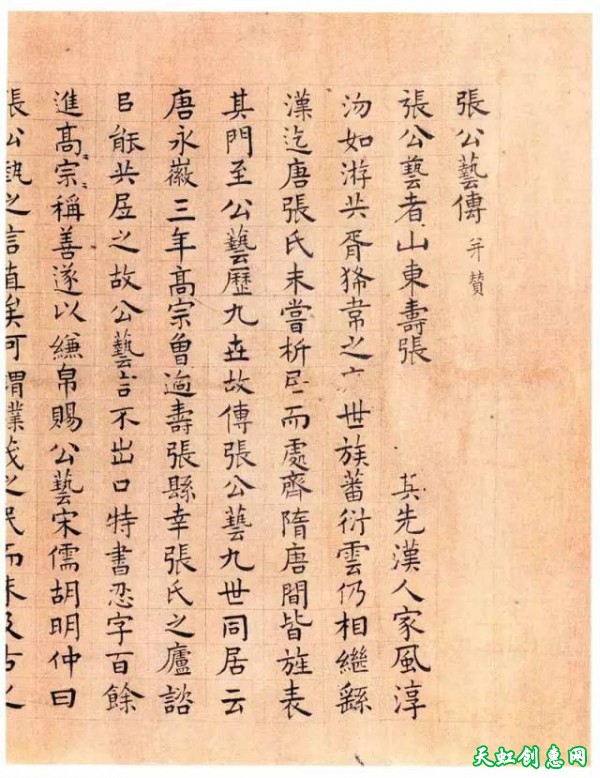 張公藝傳 并贊
張公藝者山東壽張 其先漢人家風淳
沕如游共胥狶韋之 世族蕃衍雲仍相繼繇
漢迄唐張氏未嘗析居而處齊隋唐間皆旌表
其門至公藝歷九世故傳張公藝九世同居云
唐永徽三年高宗曾過壽張縣幸張氏之廬諮
㠯能共居之故公藝言不出口特書忍字百餘
進高宗〻稱善遂以縑帛賜公藝宋儒胡明仲曰
張公藝之言直矣可謂
天虹创惠网